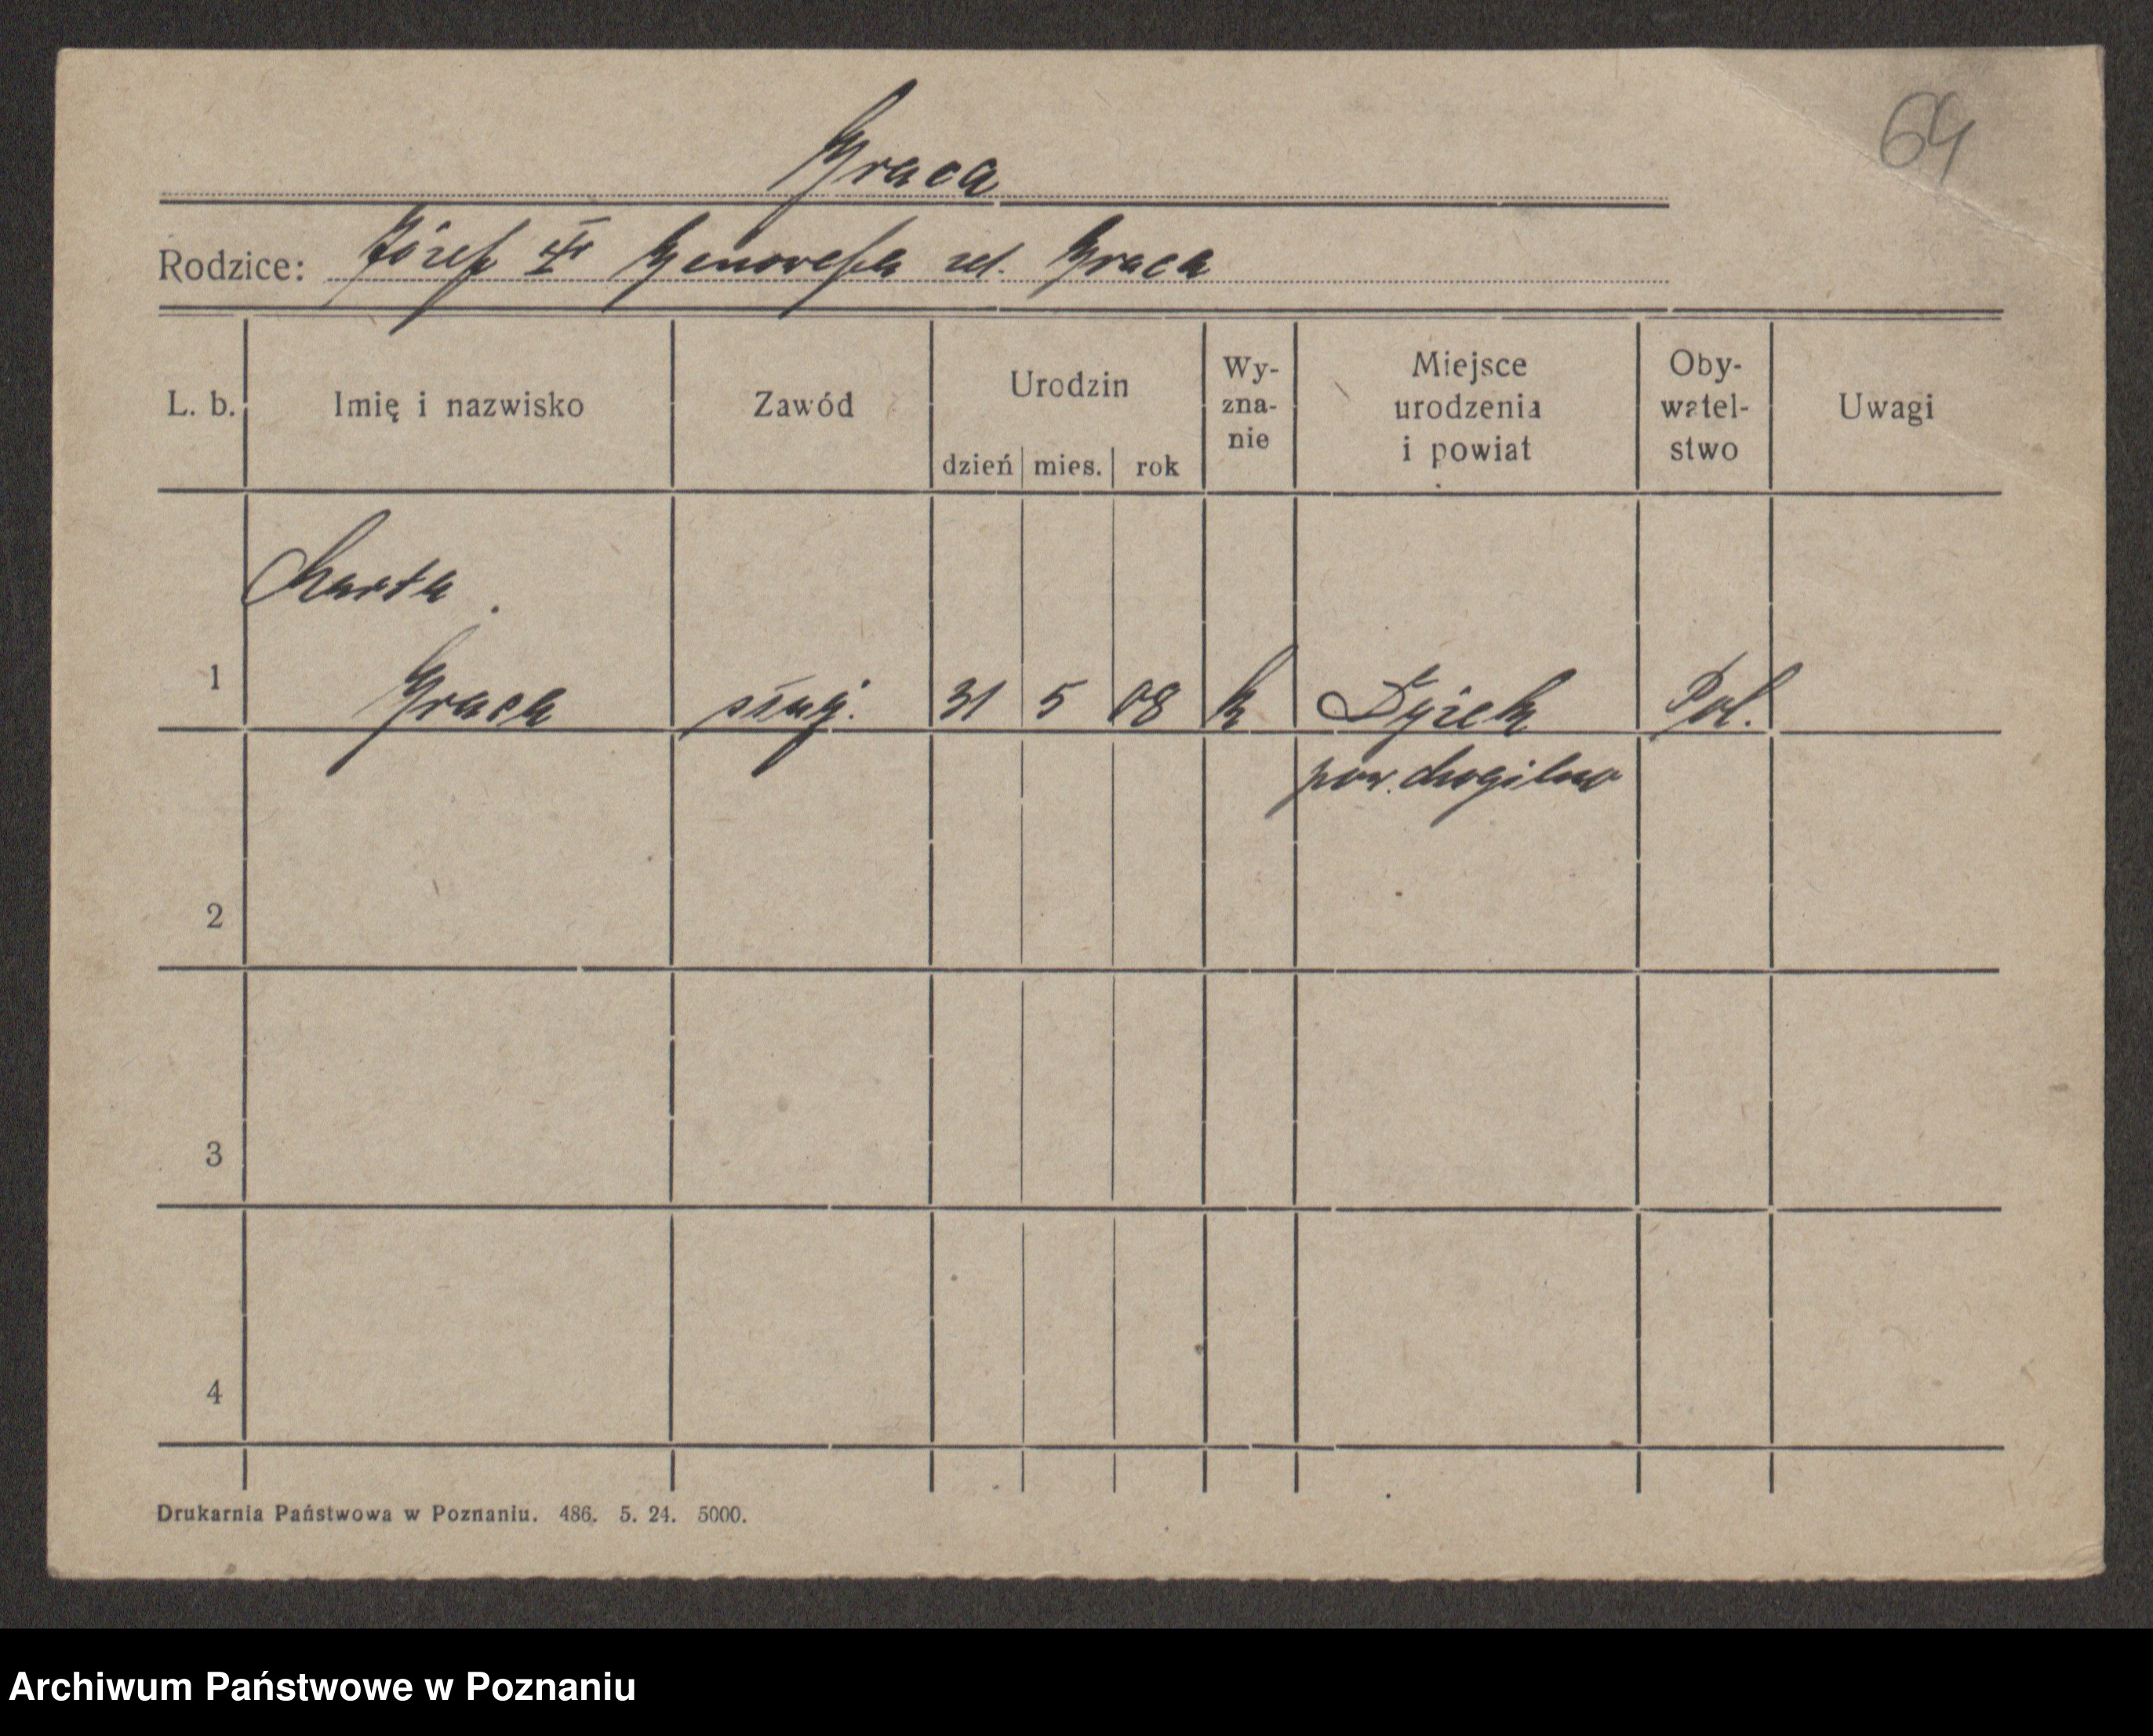 Graca
64
Rodzice: Józef Genowefa Graca
L. b. Imię i nazwisko Zawód Urodzin dzień mies. rok Wy-zna-nie Miejsce urodzenia i powiat Oby-watel-stwo Uwagi
Marta
1 Graca służ. 31 5 08 k Pol.
pow. Mogilno
2
3
4
Drukarnia Państwowa w Poznaniu. 486. 5. 24. 5000.
Archiwum Państwowe w Poznaniu